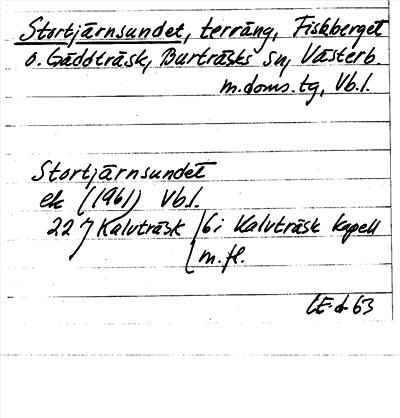 Stortjärnsundet, terräng, Fiskberget
o. Gäddträsk, Burträsks sn, Västerb.
m. doms. tg, Vb. l.
Stortjärnsundet
ek (1961) Vb. l.
22 Kalvträsk 6 i Kalvträsk kapell
m. fl.